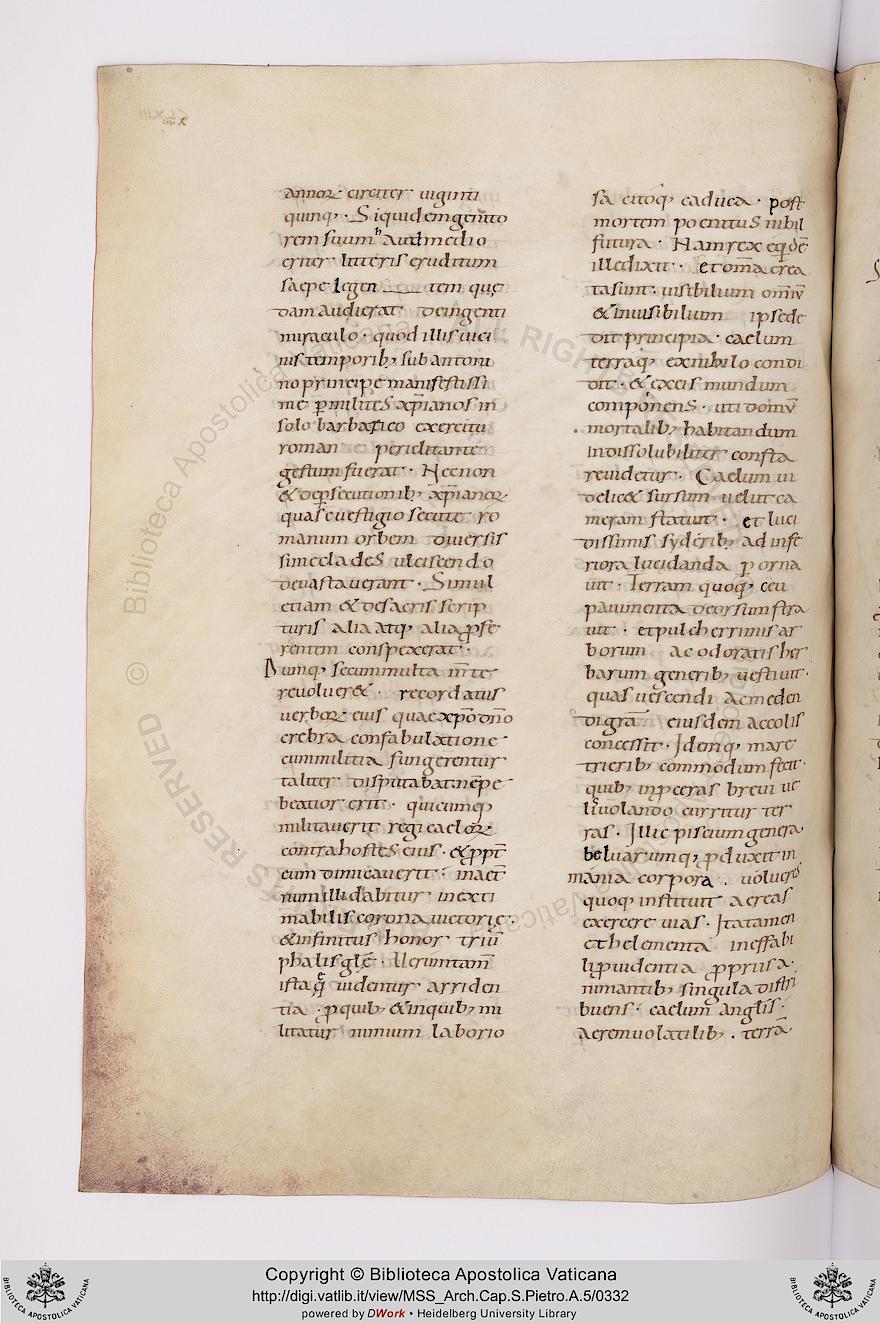 annorꝫ circiter uiginti
quinq; · Siquidem genito
rem suum haut medio
criter litteris eruditum
saepe legen tem quę
dam audierat · deingenti
miraculo · quod illis uici
nis temporib; sub antoni
no principe manifestissi
me p̄ milites xp̄ianos in
solo barbarico exercitu
roman periclitante
gestum fuerat · Necnon
& de p̄secutionib; xp̄ianorꝫ
quas e uestigio secute ro
manum orbem diuersis
sime clades ulciscendo
deuastauerant · Simul
etiam & desacris scrip
turis alia atq; alia p̄fe
rentem conspexerat ·
Dumq; secum multa inte
reuoluer& · recordatus
uerborꝫ eius quae xp̄o dn̄o
crebra confabulatione
cum militia sungerentur
taliter disputabat nēpe
beatior erit · quicumq;
militauerit regi caelorꝫ
contra hostes eius · & ppt̄
eum dimicauerit · inaet̄
num illi dabitur inexti
mabilis corona uictorię ·
& infinitus honor triū
phalis glę · Uerumtam̄
ista q̄ uidentur arriden
tia · p quib; & inquib; mi
litatur nimium laborio
sa citoq; caduca · post
mortem poenitus nihil
futura · Nam rex eqdē
ille dixit · et om̄a crea
ta sunt · uisibilium omīū
& inuisibilium ipse de
dit principia · caelum
terraq; ex nihilo condi
dit · & excis mundum
componens · uti domū
mortalib; habitandum
indissolubiliter consta
re uidetur · Caelum ui
delic& sursum uelut ca
meram statuit · et luci
dissimis syderib; ad infe
riora lucidanda p orna
uit · Terram quoq; ceu
pauimenta deorsum stra
uit · et pulcherrimis ar
borum ac odoratis her
barum generib; uestiuit ·
quas uescendi ac meden
di gr̄am eiusdem accolis
concessit · Idemq; mare
trierib; commodum fecit ·
quib; inp̄ceras breui ue
liuolando curritur ter
ras · Illic piscium genera
beluarumq; pduxit in
mania corpora · uolucrū
quoq; instituit aereas
exercere uias · Ita tamen
et helementa ineffabi
li puidentia pprius a
nimantib; singula distri
buens · caelum angl̄is ·
aerem uolatilib; · terrā
Copyright © Biblioteca Apostolica Vaticana
http://digi.vatlib.it/view/MSS_Arch.Cap.S.Pietro.A.5/0332
powered by DWork • Heidelberg University Library